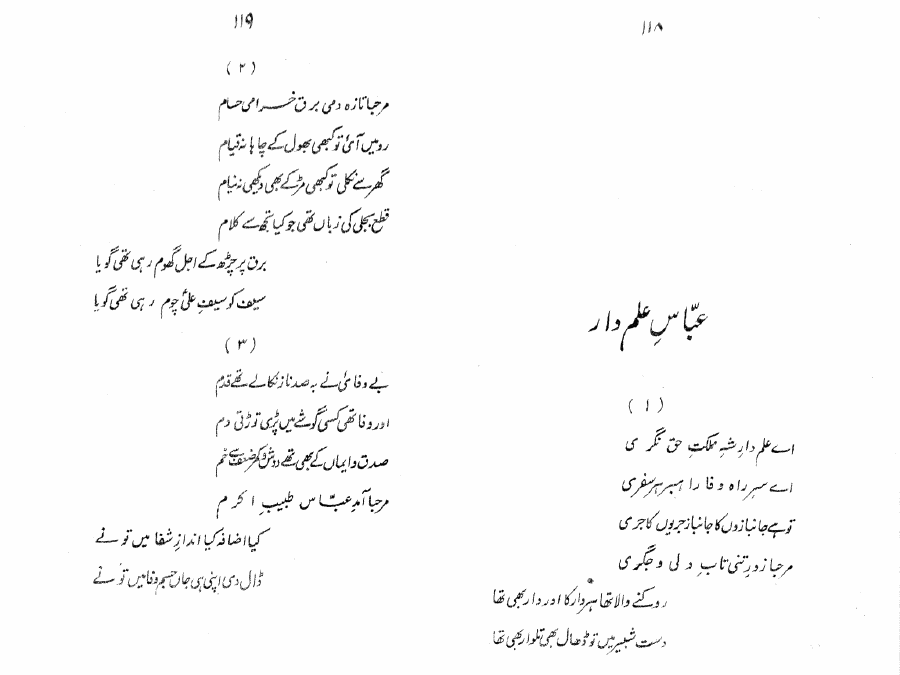 ۱۱۸
عبّاسِ علم دار
( ۱ )
اے علم دارِ شہِ مملکتِ حق نگری
اے سرِ راہِ وفا راہبرِ ہر سفری
تو ہے جانبازوں کا جانباز جریوں کا جری
مرحبا زورِ تنی تابِ دلی و جگری
روکنے والا تھا ہر وار کا اور وار بھی تھا
دست شبیر میں تو ڈھال بھی تلوار بھی تھا
۱۱۹
( ۲ )
مرحبا تازہ دمی برق خرامی حسام
رو میں آئ تو کبھی بھول کے چاہا نہ قیام
گھر سے نکلی تو کبھی مڑ کے بھی دیکھی نہ نیام
قطع بجلی کی زباں تھی جو کیا تجھ سے کلام
برق پر چڑھ کے اجل گھوم رہی تھی گویا
سیف کو سیفِ علیؑ چوم رہی تھی گویا
( ۳ )
بے وفائ نے بہ صد ناز نکالے تھے قدم
اور وفا تھی کسی گوشے میں پڑی توڑتی دم
صدق و ایماں کے بھی تھے دوش و کمر ضعف سے خم
مرحبا آمدِ عبّاس طبیبِ اکرم
کیا اضافہ کیا اندازِ شفا میں تو نے
ڈال دی اپنی ہی جاں جسمِ وفا میں تو نے